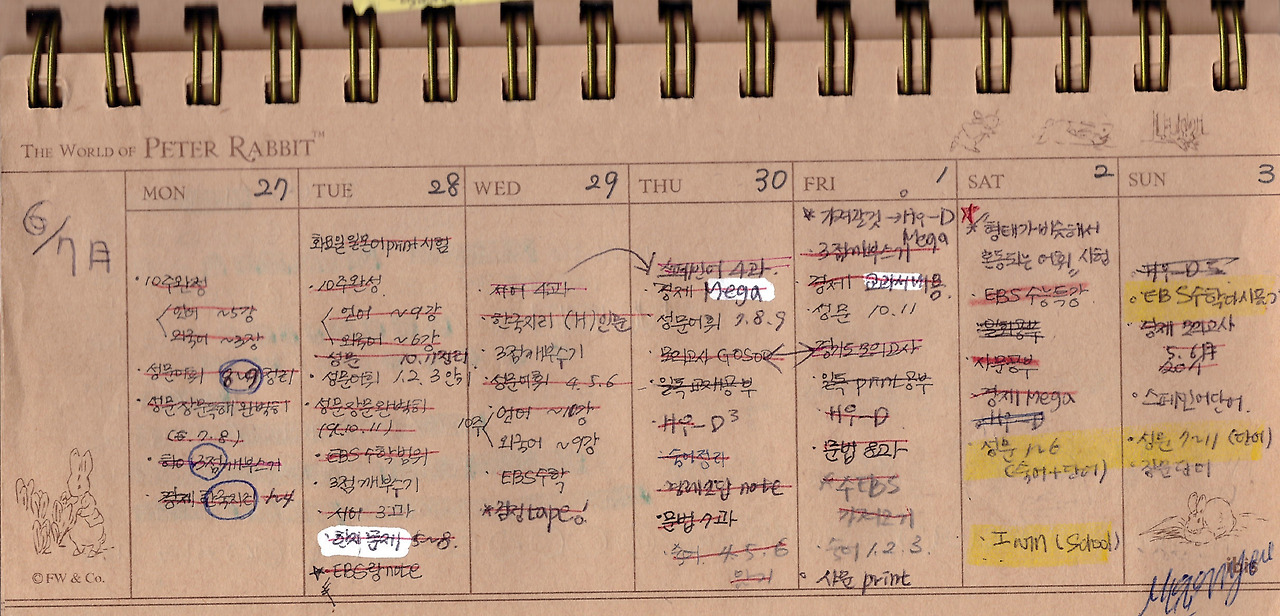 THE WORLD OF PETER RABBIT™
6/7月
MON 27
10주완성
언어 ~5강
외국어 ~3강
성문어휘 8~9 정리
성문장문독해 완벽히
(6.7.8)
3점깨부수기
경제 한국지리 1~4
TUE 28
화요일 일본어 print 시험
10주완성
언어 ~9강
외국어 ~6강
성문 10.11정리
성문어휘 1.2.3 암기
성문장문완벽히
(9.10.11)
EBS수학범위
3점깨부수기
서어 3과
한지 문제 5~8.
EBS랑note
WED 29
서어 4과
한국지리 (H)인문
3점깨부수기
성문어휘 4.5.6
10주
언어 ~10강
외국어 ~9강
EBS수학
감정tape
THU 30
스페인어 4과
경제 Mega
성문어휘 7.8.9
모의고사
일독교재공부
H우-D3
숙어정리
오답 note
문법 7과
숙어 4.5.6
암기
FRI 1
*가져갈것→H우-D
Mega
3점깨부수기
경제 교과서내용
성문 10.11
경기도모의고사
일독print공부
H우-D
문법 8과
수EBS
가져오기
숙어 1.2.3.
사문 print
SAT 2
형태가비슷해서
혼동되는 어휘 시험
EBS수능특강
일본공부
사문공부
경제 Mega
H우-D
성문 1~6
(숙어+단어)
I WIN (School)
SUN 3
H우-D
EBS수학다시풀기
경제 모의고사
5.6月
스페인어단어.
성문 7~11 (단어)
장문단어
©FW & Co.